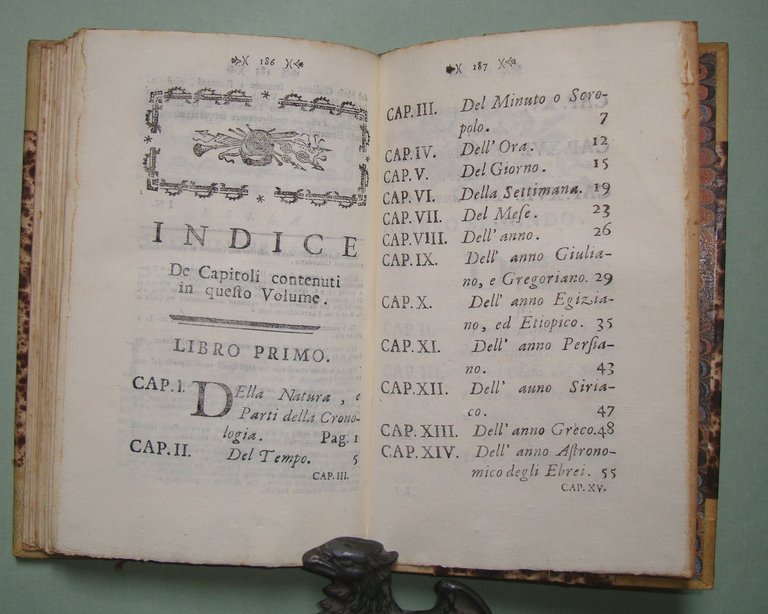 186
INDICE
De Capitoli contenuti
in queſto Volume.
LIBRO PRIMO.
CAP. I. DElla Natura, e
Parti della Crono-
logia. Pag. 1
CAP. II. Del Tempo. 5
CAP. III.
187
CAP. III. Del Minuto o Scro-
polo. 7
CAP. IV. Dell' Ora. 12
CAP. V. Del Giorno. 15
CAP. VI. Della Settimana. 19
CAP. VII. Del Meſe. 23
CAP. VIII. Dell' anno. 26
CAP. IX. Dell' anno Giulia-
no, e Gregoriano. 29
CAP. X. Dell' anno Egizia-
no, ed Etiopico. 35
CAP. XI. Dell' anno Perſia-
no. 43
CAP. XII. Dell' auno Siria-
co. 47
CAP. XIII. Dell' anno Greco. 48
CAP. XIV. Dell' anno Aſtrono-
mico degli Ebrei. 55
CAP. XV.